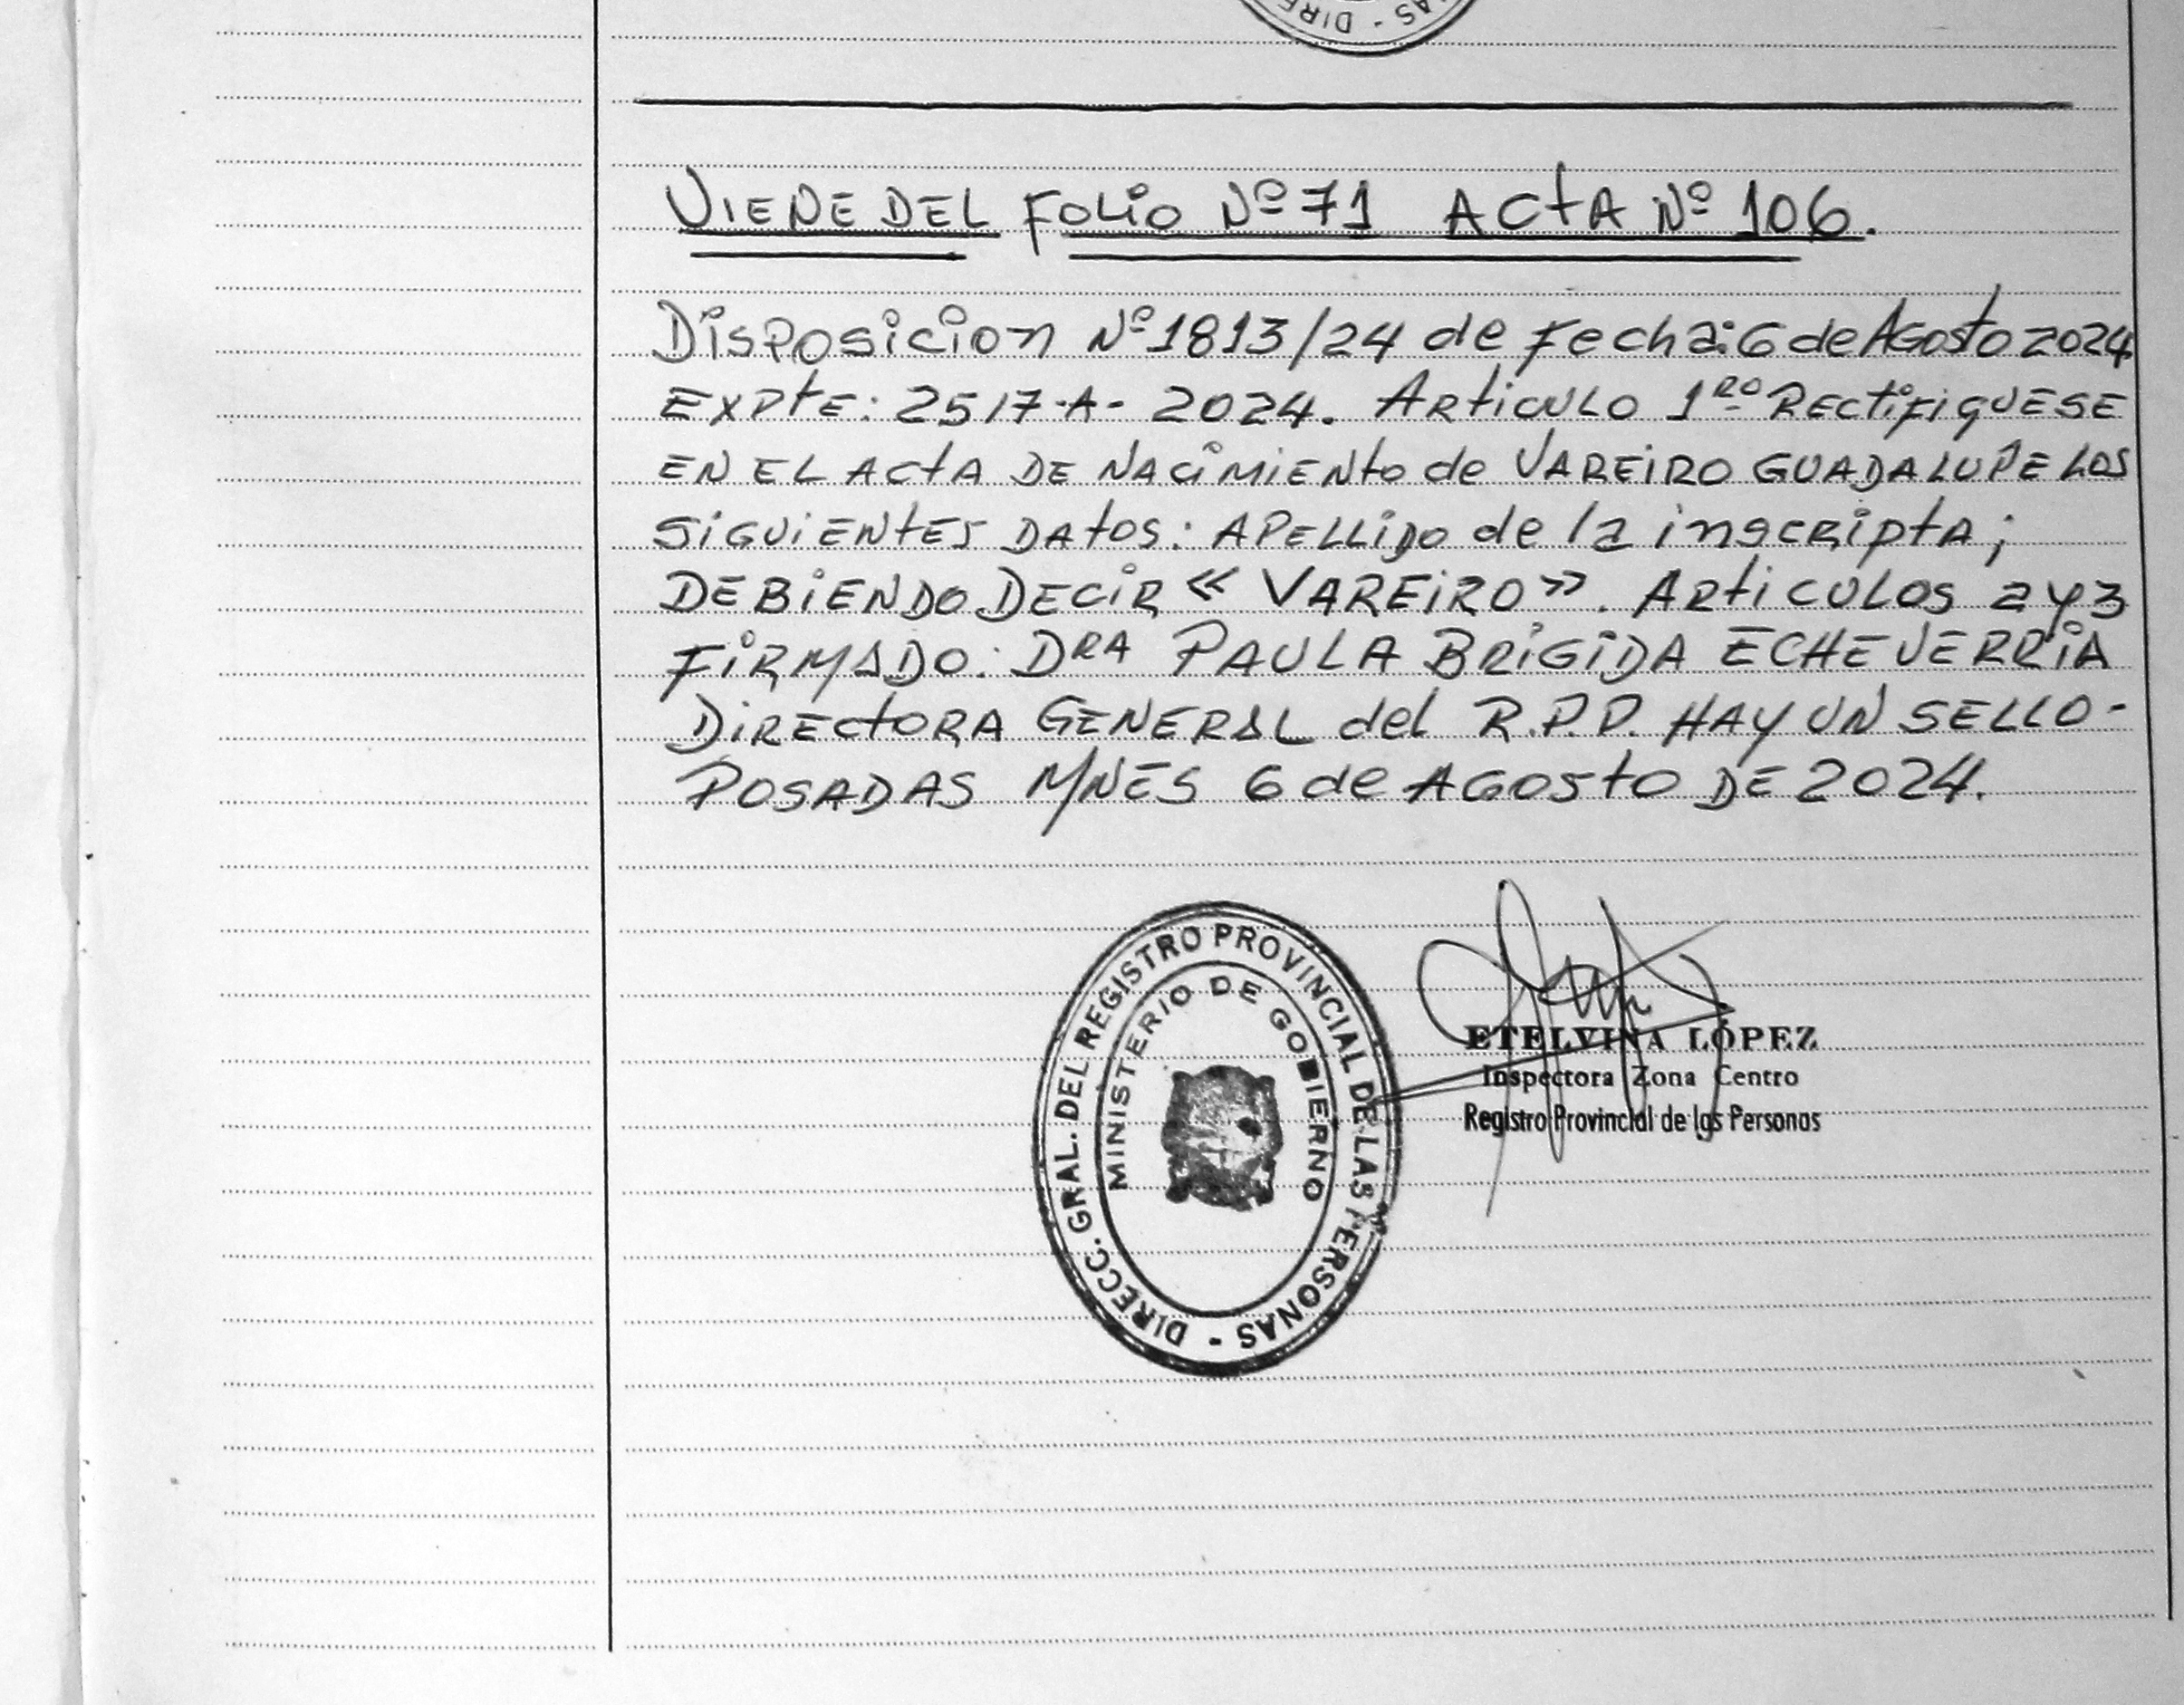 NAS - DIRE
VIENE DEL FOLIO Nº 71 ACTA Nº 106.
Disposicion Nº 1813/24 de Fecha: 6 de Agosto 2024
EXPTE: 2517-A- 2024. Articulo 1RO RECTIFIQUESE
EN EL ACTA DE NACIMIENTO de VAREIRO GUADALUPE LOS
SIGUIENTES DATOS: APELLIDO de la inscripta;
DEBIENDO DECIR « VAREIRO ». ARTICULOS 2 y 3
FIRMADO: DRA PAULA BRIGIDA ECHEVERRIA
DIRECTORA GENERAL del R.P.P. HAY UN SELLO-
POSADAS MNES 6 de AGOSTO DE 2024.
DIRECC. GRAL. DEL REGISTRO PROVINCIAL DE LAS PERSONAS -
MINISTERIO DE GOBIERNO
ETELVINA LÓPEZ
Inspectora Zona Centro
Registro Provincial de las Personas